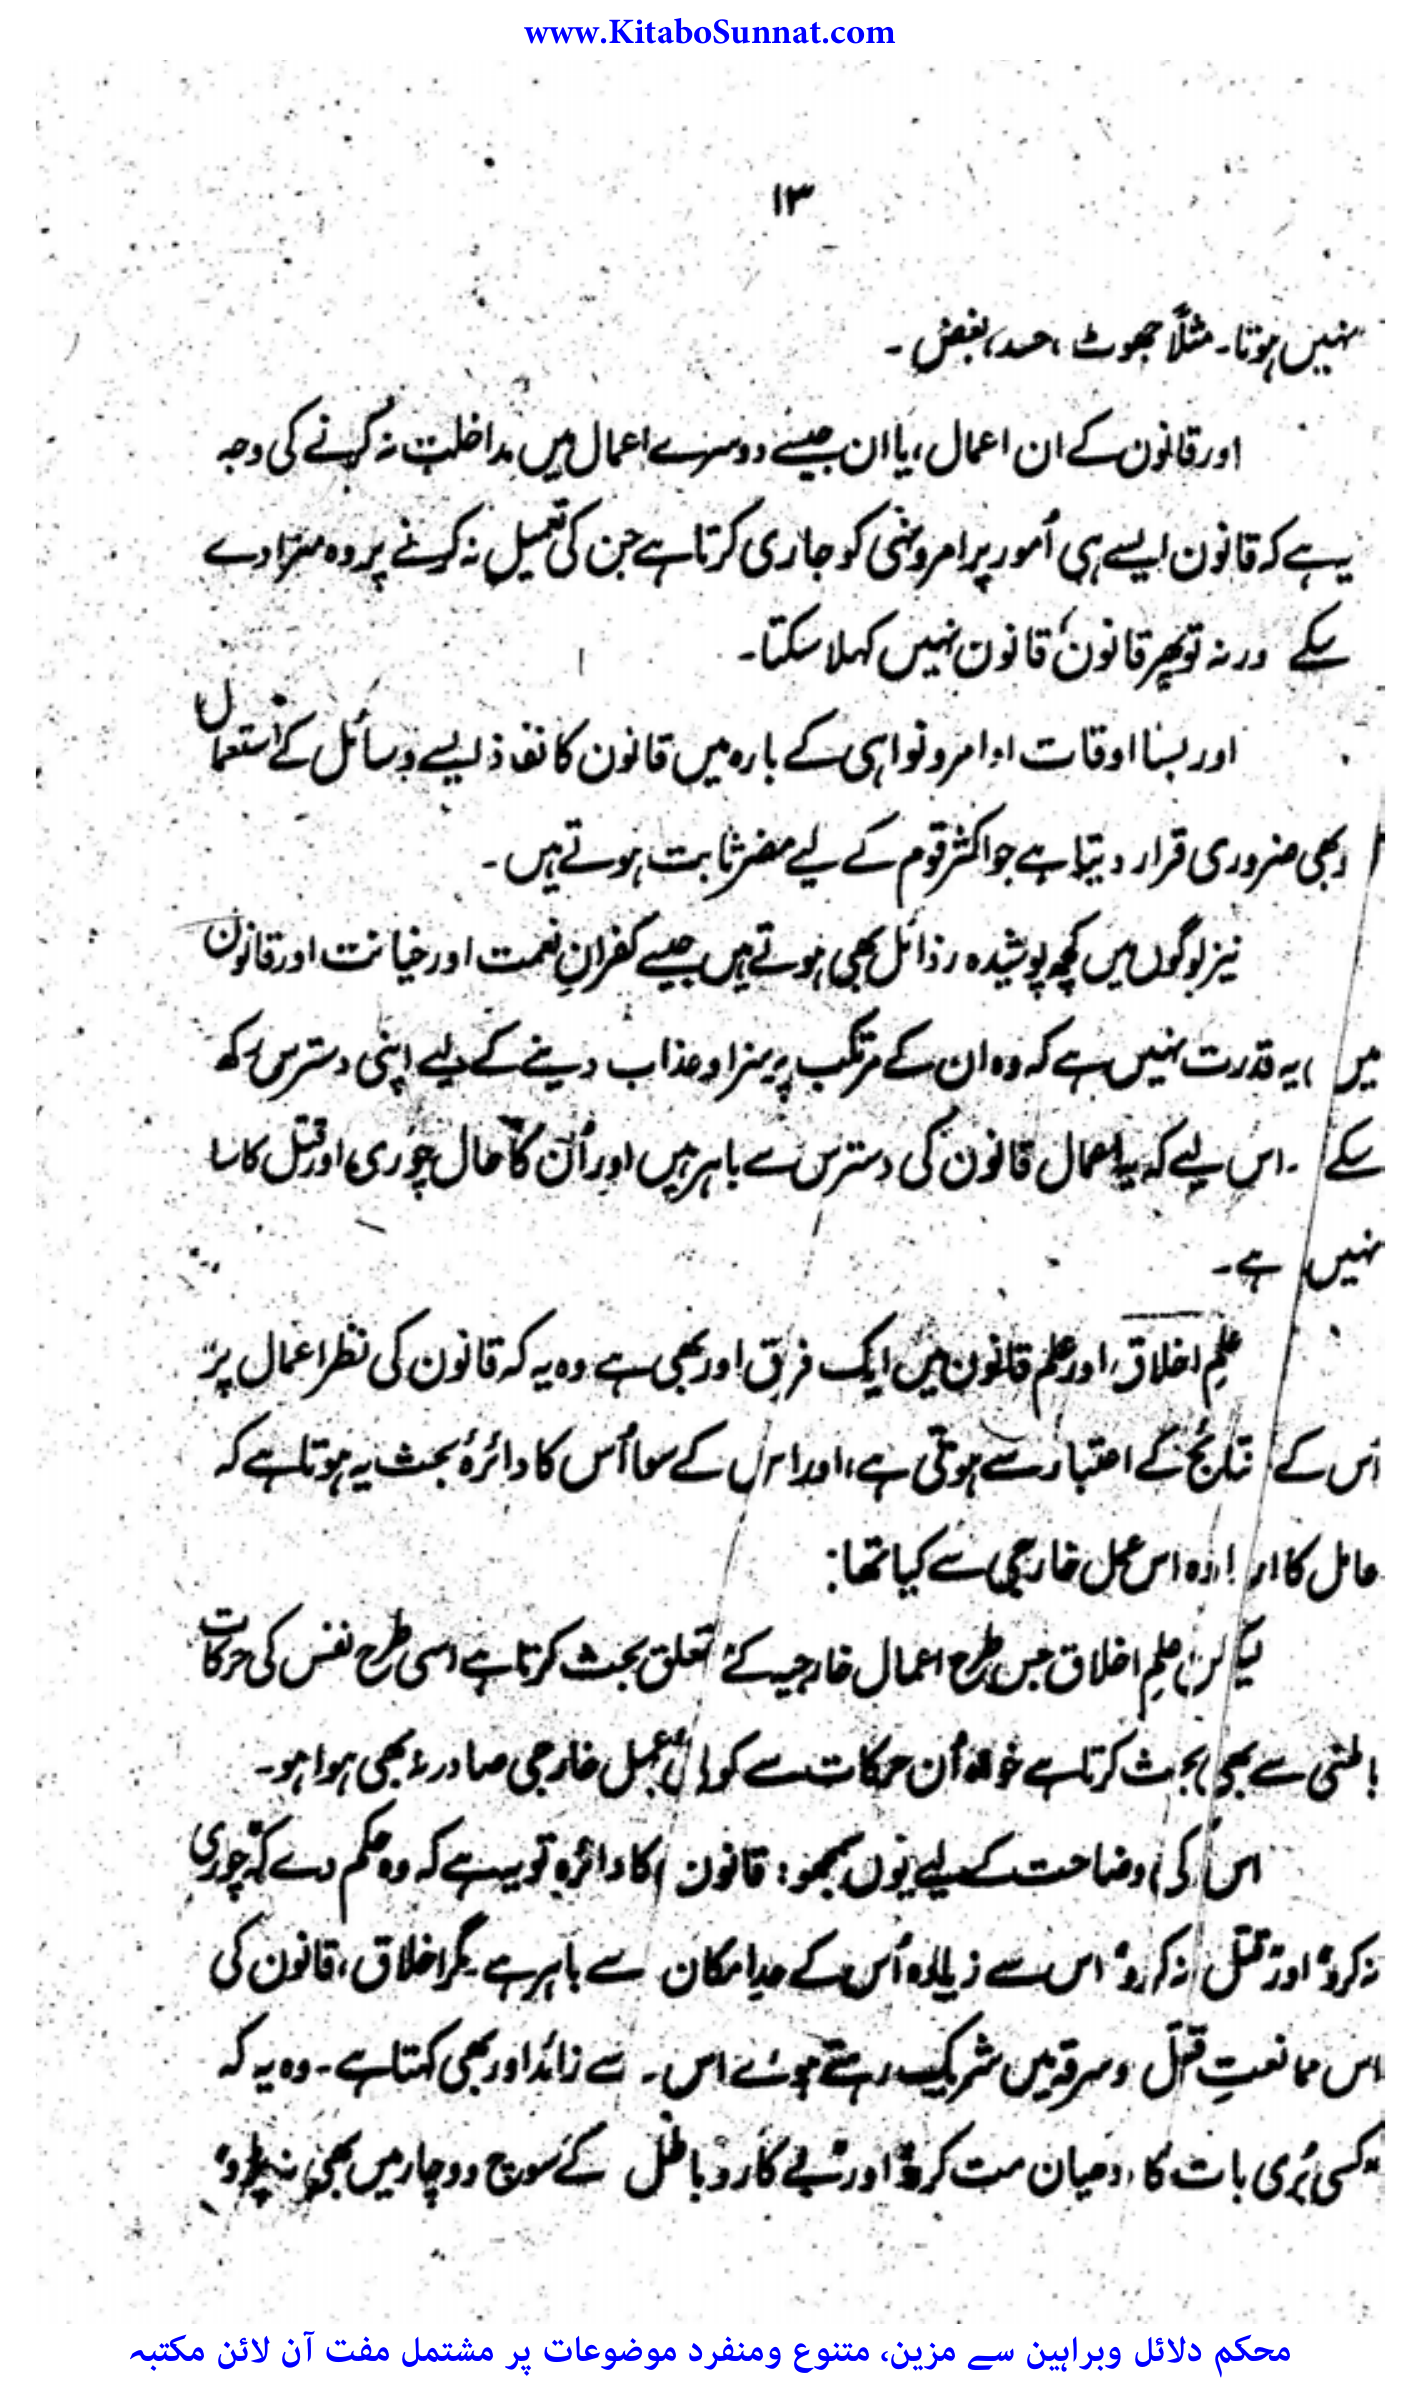 www.KitaboSunnat.com
۱۳
نہیں ہوتا۔ مثلاً جھوٹ، حسد، بغض۔
اور قانون کے ان اعمال، یا ان جیسے دوسرے اعمال میں مداخلت نہ کرنے کی وجہ
یہ ہے کہ قانون ایسے ہی اُمور پر امر و نہی کو جاری کرتا ہے جن کی تعمیل نہ کرنے پر وہ سزا دے
سکے ورنہ تو پھر قانون، قانون نہیں کہلا سکتا۔
اور بسا اوقات اوامر و نواہی کے بارہ میں قانون کا نفاذ ایسے وسائل کے استعمال
کو بھی ضروری قرار دیتا ہے جو اکثر قوم کے لیے مضر ثابت ہوتے ہیں۔
نیز لوگوں میں کچھ پوشیدہ رذائل بھی ہوتے ہیں جیسے کفرانِ نعمت اور خیانت اور قانون
میں یہ قدرت نہیں ہے کہ وہ ان کے مرتکب پر سزا و عذاب دینے کے لیے اپنی دسترس رکھ
سکے۔ اس لیے کہ یہ اعمال قانون کی دسترس سے باہر ہیں اور اُن کا حال چوری اور قتل کا سا
نہیں ہے۔
علمِ اخلاق، اور علم قانون میں ایک فرق اور بھی ہے وہ یہ کہ قانون کی نظر اعمال پر
اُس کے نتائج کے اعتبار سے ہوتی ہے، اور اس کے سوا اُس کا دائرۂ بحث یہ ہوتا ہے کہ
عامل کا ارادہ اس عمل خارجی سے کیا تھا؛
لیکن علمِ اخلاق جس طرح اعمال خارجیہ کے متعلق بحث کرتا ہے اسی طرح نفس کی حرکات
باطنی سے بھی بحث کرتا ہے خواہ اُن حرکات سے کوئی عمل خارجی صادر نہ بھی ہوا ہو۔
اس کی وضاحت کے لیے یوں سمجھو: قانون کا دائرہ تو یہ ہے کہ وہ حکم دے کہ "چوری
نہ کرو" اور "قتل نہ کرو" اس سے زیادہ اُس کے حدِ امکان سے باہر ہے مگر اخلاق، قانون کی
اس ممانعتِ قتل و سرقہ میں شریک رہتے ہوئے اس سے زائد اور بھی کہتا ہے۔ وہ یہ کہ
"کسی بُری بات کا دھیان مت کرو" اور "بے کار و باطل کے سوچ و وچار میں بھی نہ پڑو"
محکم دلائل وبراہین سے مزین، متنوع ومنفرد موضوعات پر مشتمل مفت آن لائن مکتبہ